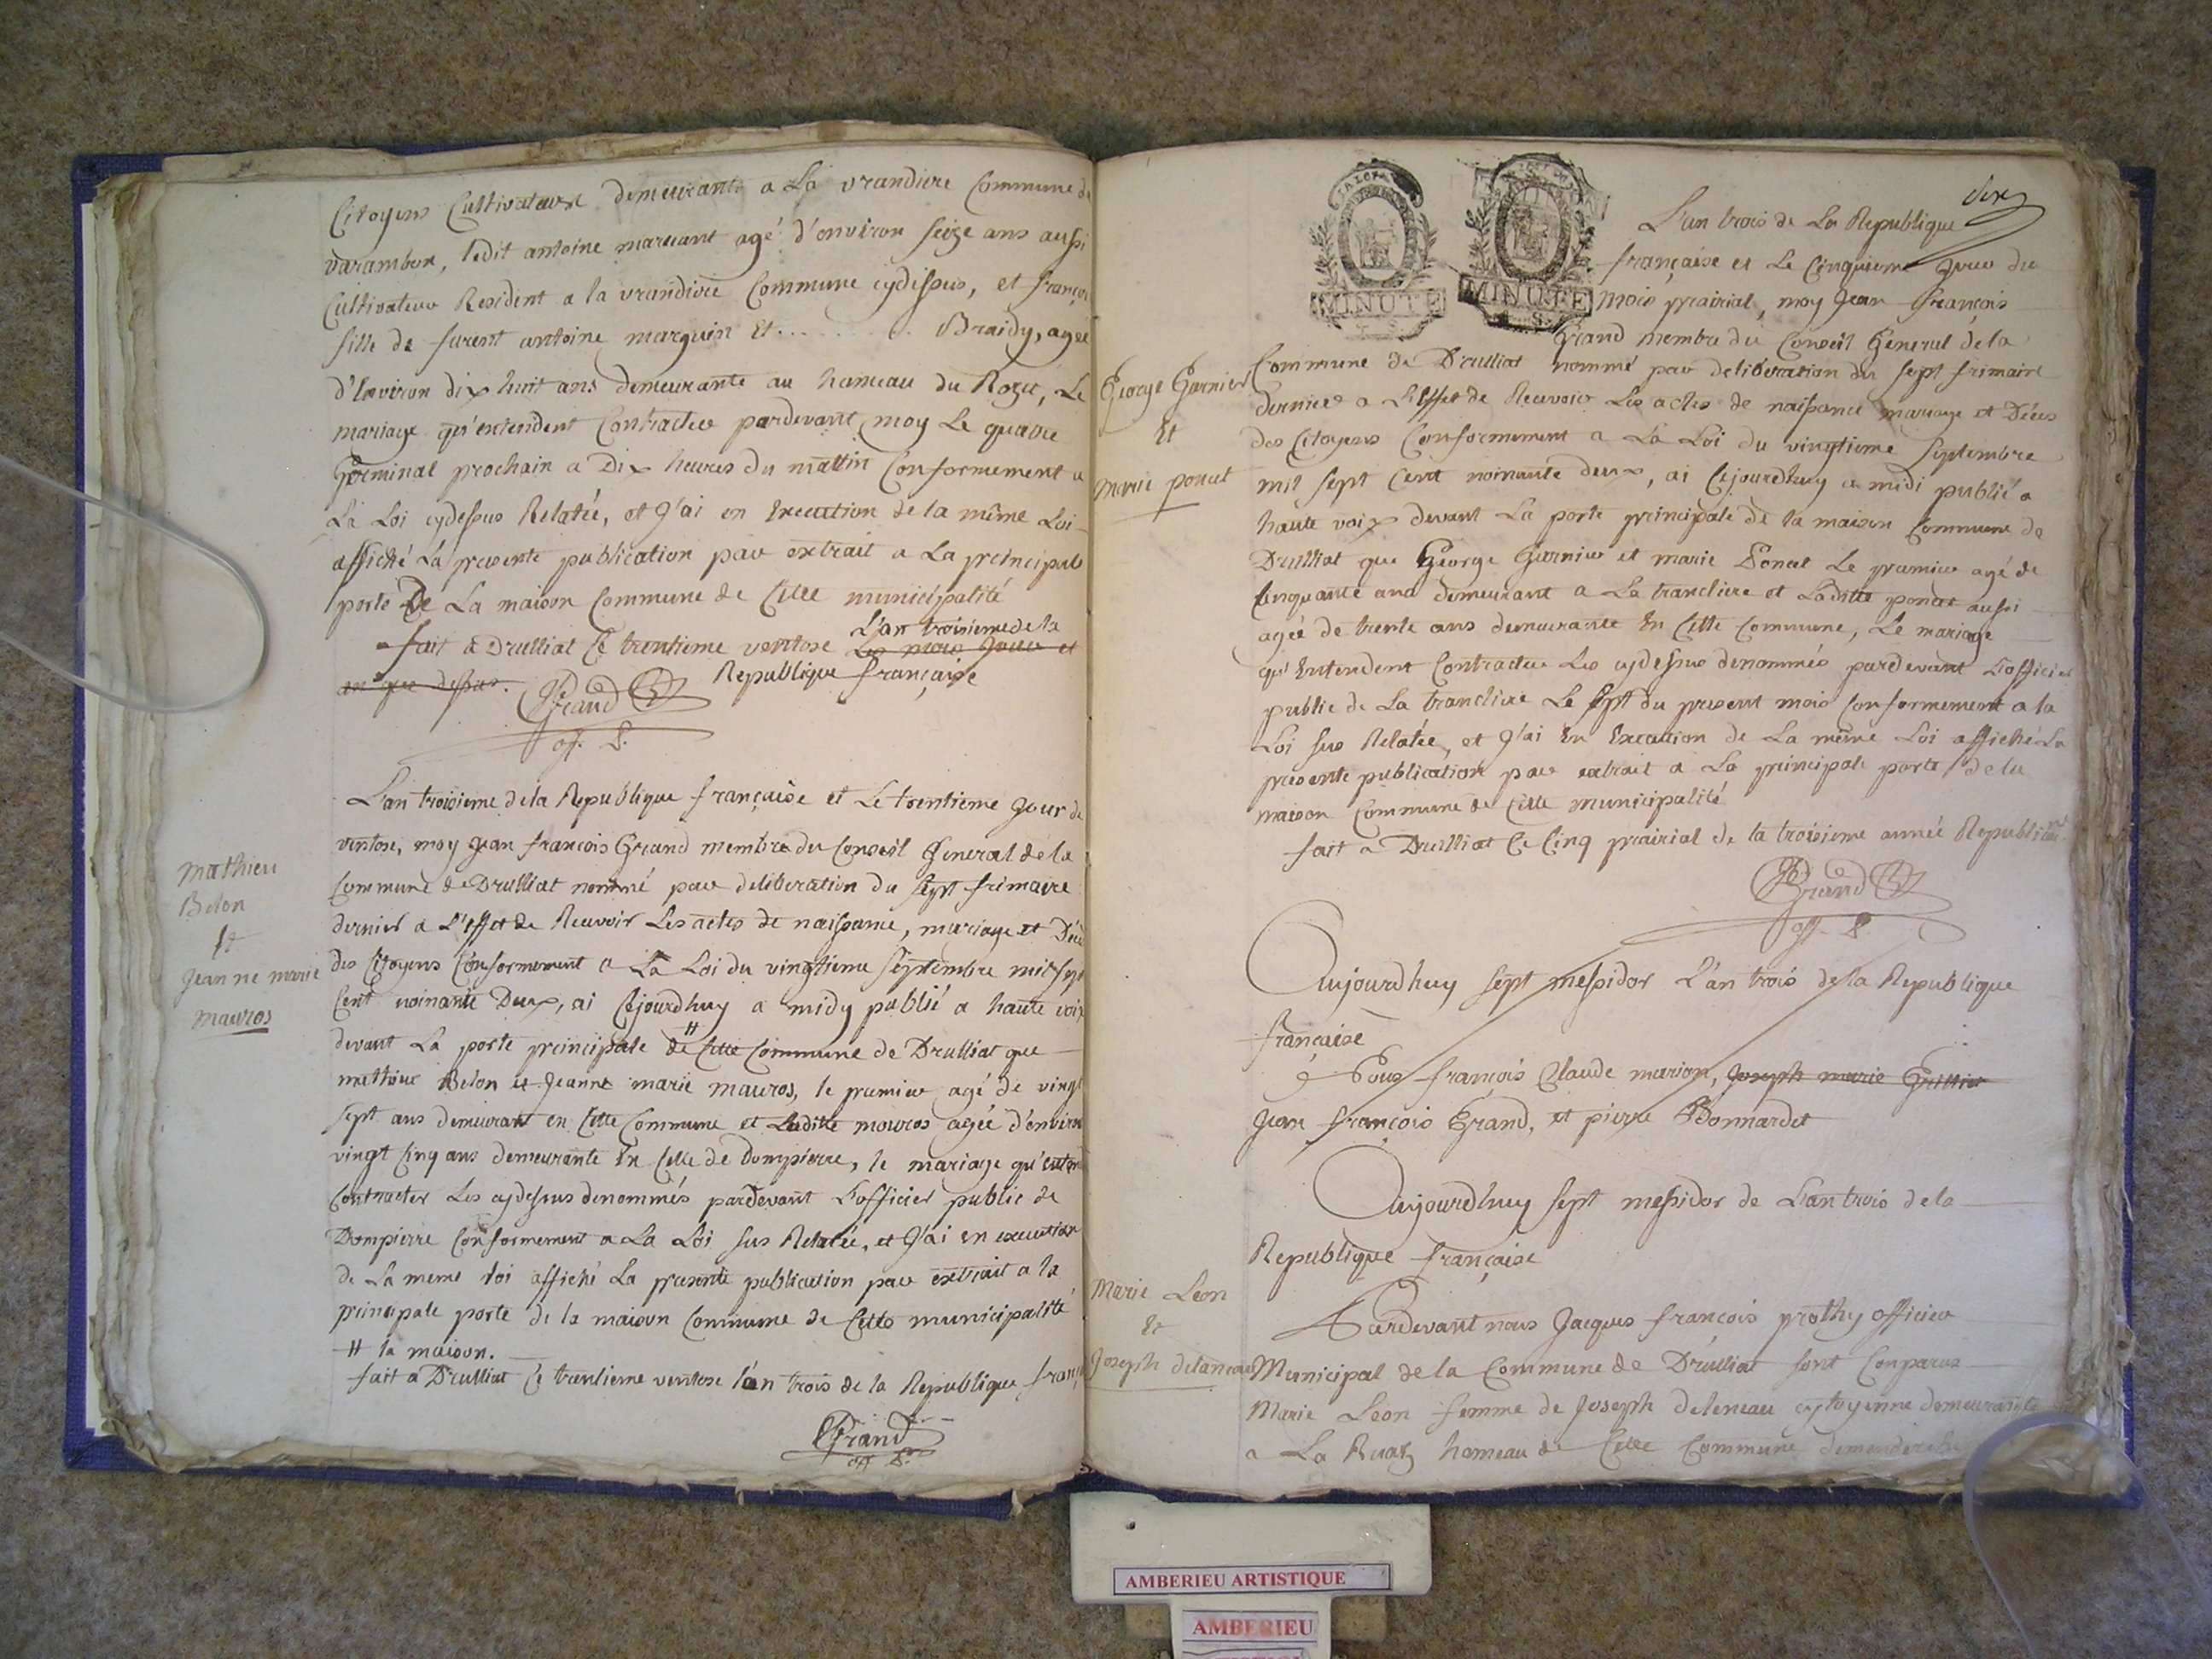 Citoyens Cultivateurs demeurants a La vrandiere Commune de
varambon, ledit antoine marguant agé d'environ seize ans aussi
Cultivateur Resident a la vrandiere Commune cydessus, et françoi
fille de furent antoine marguin Et . . . . . . . Braidy, agee
d'Environ dix huit ans demeurante au hameau du Roget, Le
mariage qu'entendent Contracter pardevant moy Le quatre
Germinal prochain a Dix heures du mattin Conformement a
La Loi cydessus Relatée, et J'ai en Execution de la même Loi
affiché La presente publication par extrait a La principale
porte De La maison Commune de Cette municipalité
fait a Drulliat Ce trentieme ventose L'an troisieme de la
Les mois Jour et
an que dessus. Republique française
Grand
off. P.
L'an troisieme de la Republique française et Le trentieme Jour de
ventose, moy Jean francois Grand membre du Conseil General de la
Commune de Drulliat nommé par deliberation du sept frimaire
dernier a L'effet de Recevoir Les actes de naissance, mariage et Décè
des Citoyens Conformement a La Loi du vingtieme septembre mil sept
Cent noinante Deux, ai Cejourdhuy a midy publié a haute voix
devant La porte principale de # Cette Commune de Drulliat que
mathieu Belon et Jeanne marie mauros, le premier agé de vingt
sept ans demeurant en Cette Commune et Laditte mouros agée d'environ
vingt Cinq ans demeurante En Celle de Dompierre, le mariage qu'enten
Contracter Les cydessus denommés pardevant L'officier public de
Dompierre Conformement a La Loi sus Relatée, et J'ai en execution
de La meme Loi affiché La presente publication par extrait a la
principale porte de la maison Commune de Cette municipalité
# la maison.
fait a Drulliat Ce trentieme ventose l'an trois de la Republique franç
Grand
off P.
mathieu
Belon
Et
Jeanne marie
mauros
dix
L'an trois de La Republique
française et Le Cinquieme Jour du
mois prairial, moy Jean François
Grand membre du Conseil General de la
Commune de Drulliat nommé par deliberation du sept frimaire
dernier a L'Effet de Recevoir Les actes de naissance mariage et Décès
des Citoyens Conformement a La Loi du vingtieme septembre
mil sept Cent noinante deux, ai Cejourdhuy a midi publié a
haute voix devant La porte principale de la maison Commune de
Drulliat que George Garnier et marie Poncet Le premier agé de
Cinquante ans demeurant a La trancliere et Laditte poncet aussi
agée de trente ans demeurante En Cette Commune, Le mariage
qu'Entendent Contracter Les cydessus denommés pardevant L'officier
public de La trancliere Le sept du present mois Conformement a la
Loi sus Relatée, et J'ai En Execution de La même Loi affiché La
presente publication par extrait a La principale porte de la
maison Commune de Cette municipalité
fait a Drulliat Ce Cinq prairial de la troisieme année Republicai
Grand
off. P
MINUTE
MINUTE
George Garnier
Et
Marie poncet
Aujourdhuy sept messidor L'an trois de la Republique
française
Nous françois Claude marion, Joseph marie Grillier
Jean françois Grand, et pierre Bonnardet
Aujourdhuy sept messidor de L'an trois de la
Republique française
Pardevant nous Jacques françois prothy officier
Municipal de la Commune de Drulliat sont Comparus
Marie Leon femme de Joseph deleneau cytoyenne demeurante
a La Ruaz hameau de Cette Commune
Marie Leon
Et
Joseph delaneau
AMBERIEU ARTISTIQUE
AMBERIEU